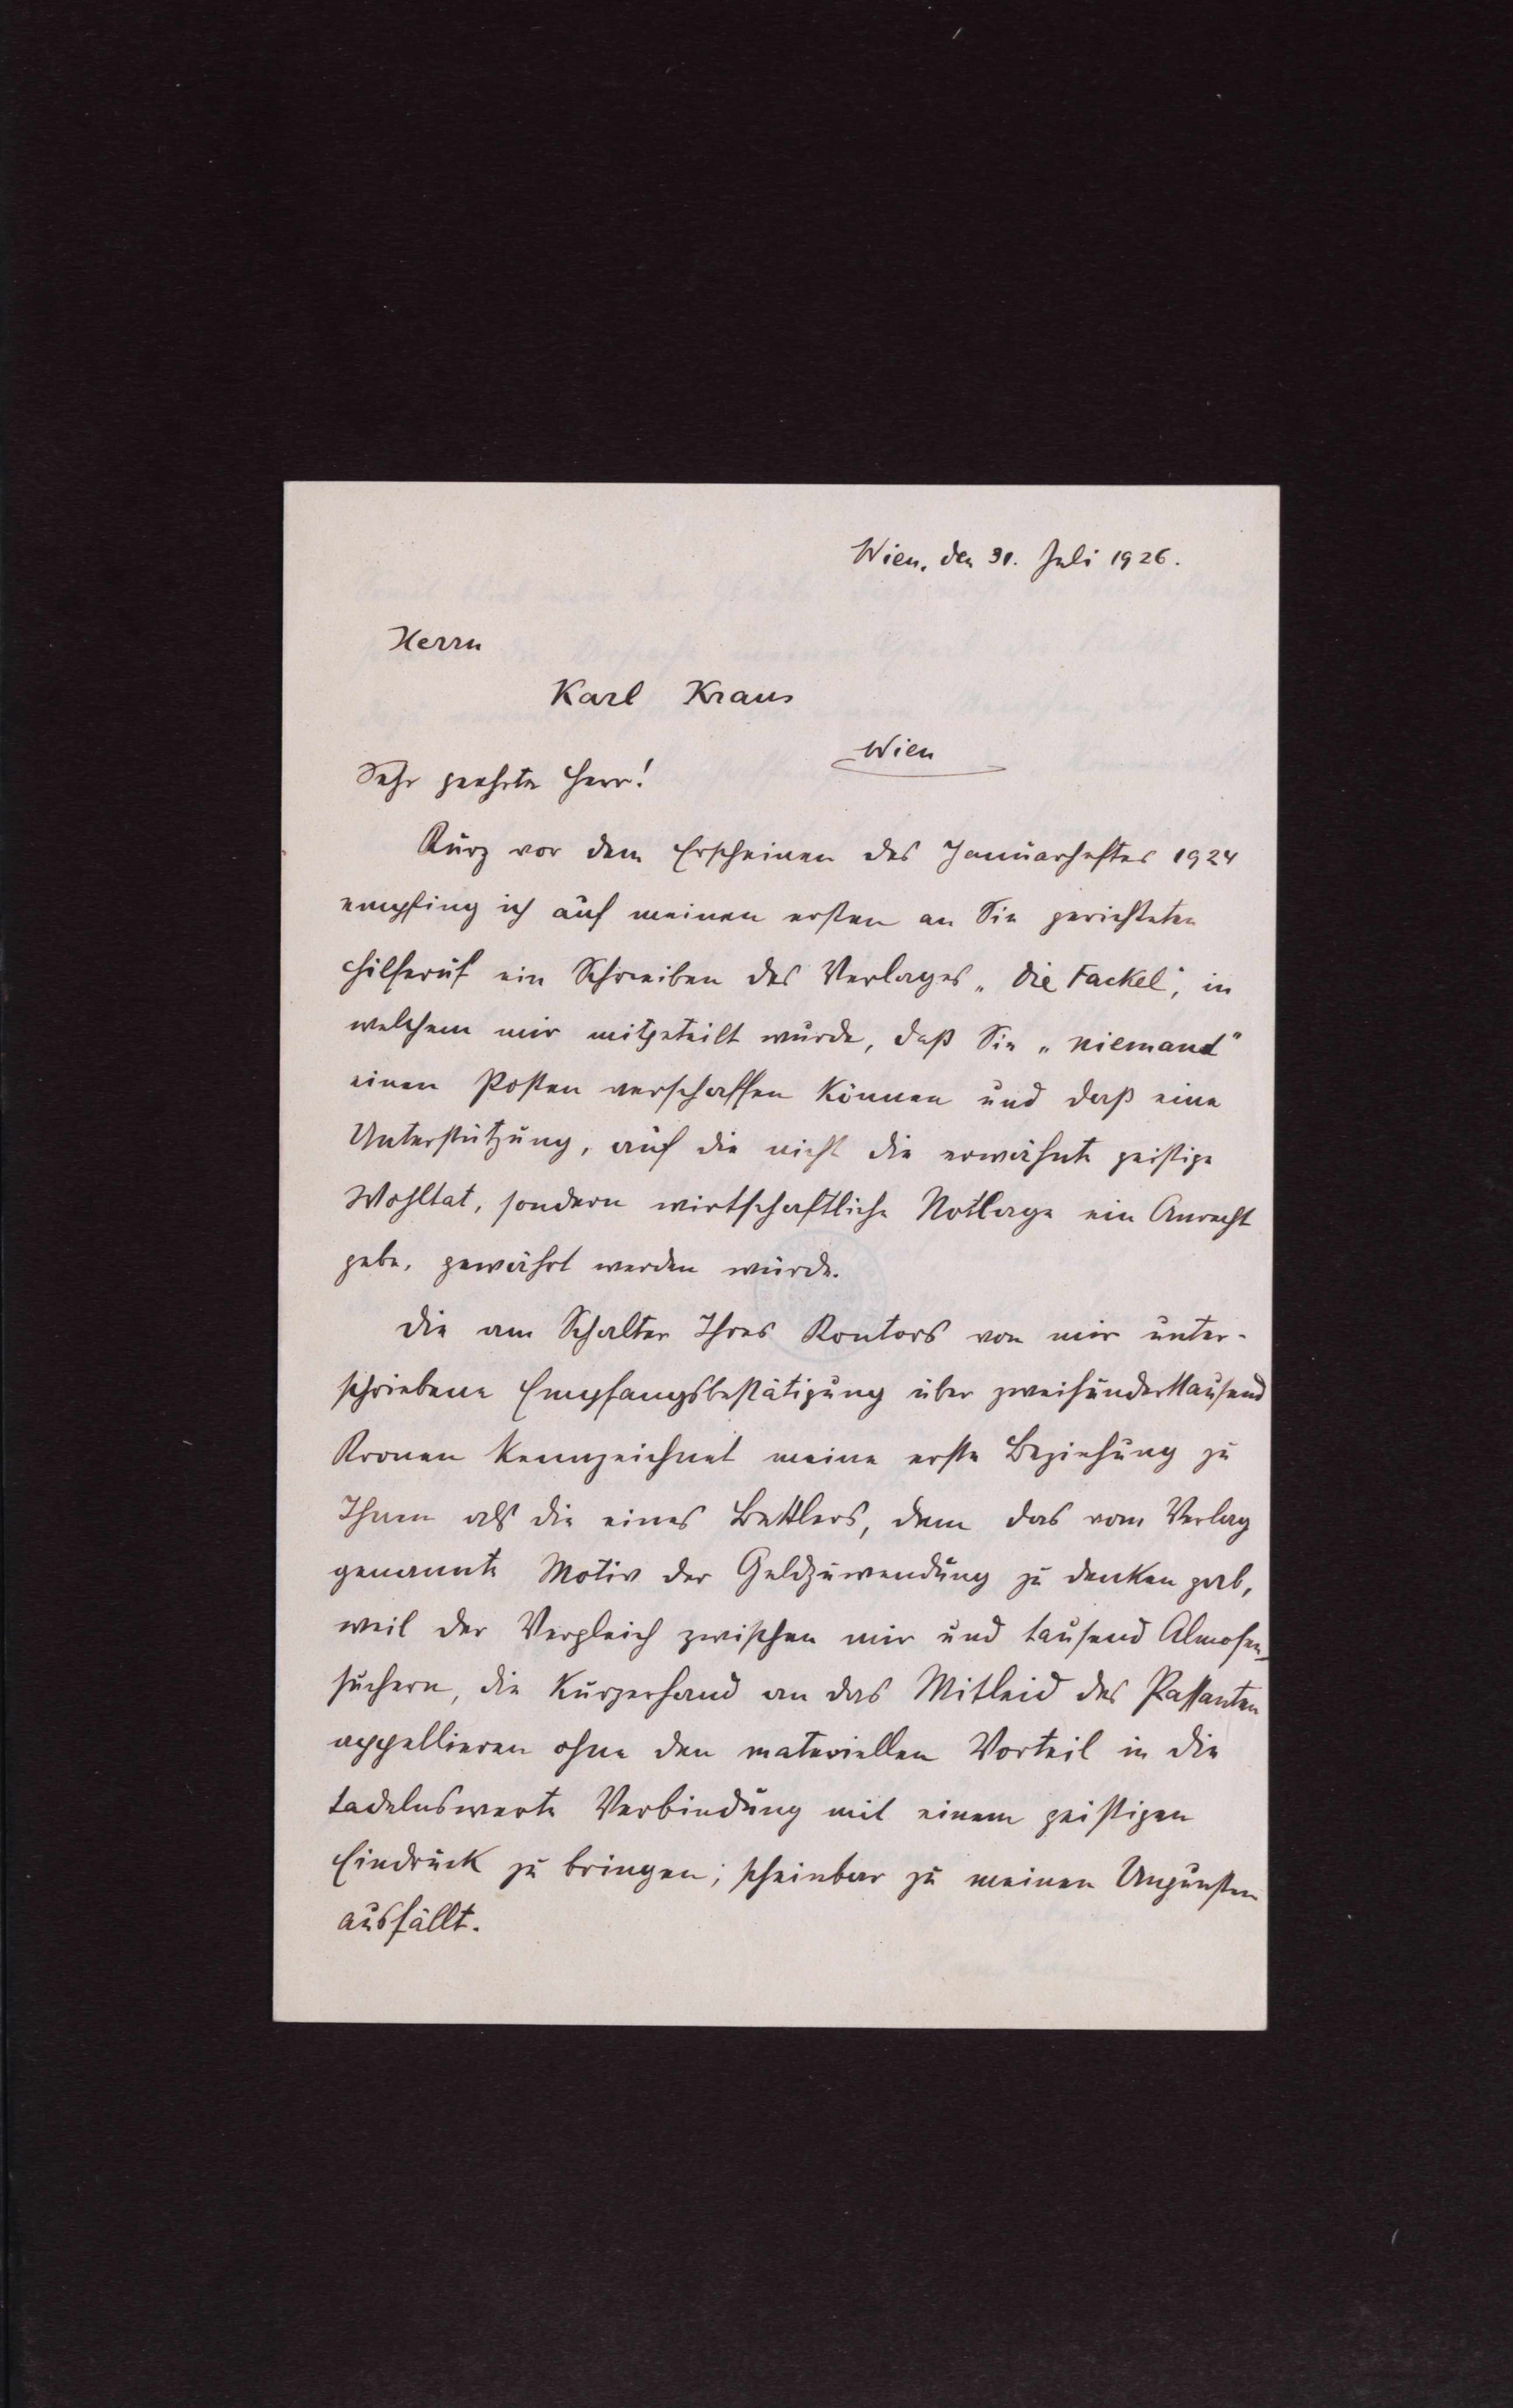 Wien, den 31. Juli 1926.
Herrn
Karl Kraus
Wien
Sehr geehrter Herr!
Kurz vor dem Erscheinen des Januarheftes 1924
empfing ich auf meinen ersten an Sie gerichteten
Hilferuf ein Schreiben des Verlages „Die Fackel“, in
welchem mir mitgeteilt wurde, daß Sie „niemand“
einen Posten verschaffen können und daß eine
Unterstützung, auf die nicht die erwähnte geistige
Wohltat, sondern wirtschaftliche Notlage ein Anrecht
gebe, gewährt werden würde.
Die am Schalter Ihres Kontors von mir unter-
schriebene Empfangsbestätigung über zweihunderttausend
Kronen kennzeichnet meine erste Beziehung zu
Ihnen als die eines Bettlers, dem das vom Verlag
genannte Motiv der Geldzuwendung zu denken gab,
weil der Vergleich zwischen mir und tausend Almosen-
suchern, die kurzerhand an das Mitleid des Passanten
appellieren ohne den materiellen Vorteil in die
tadelnswerte Verbindung mit einem geistigen
Eindruck zu bringen; scheinbar zu meinen Ungunsten
ausfällt.